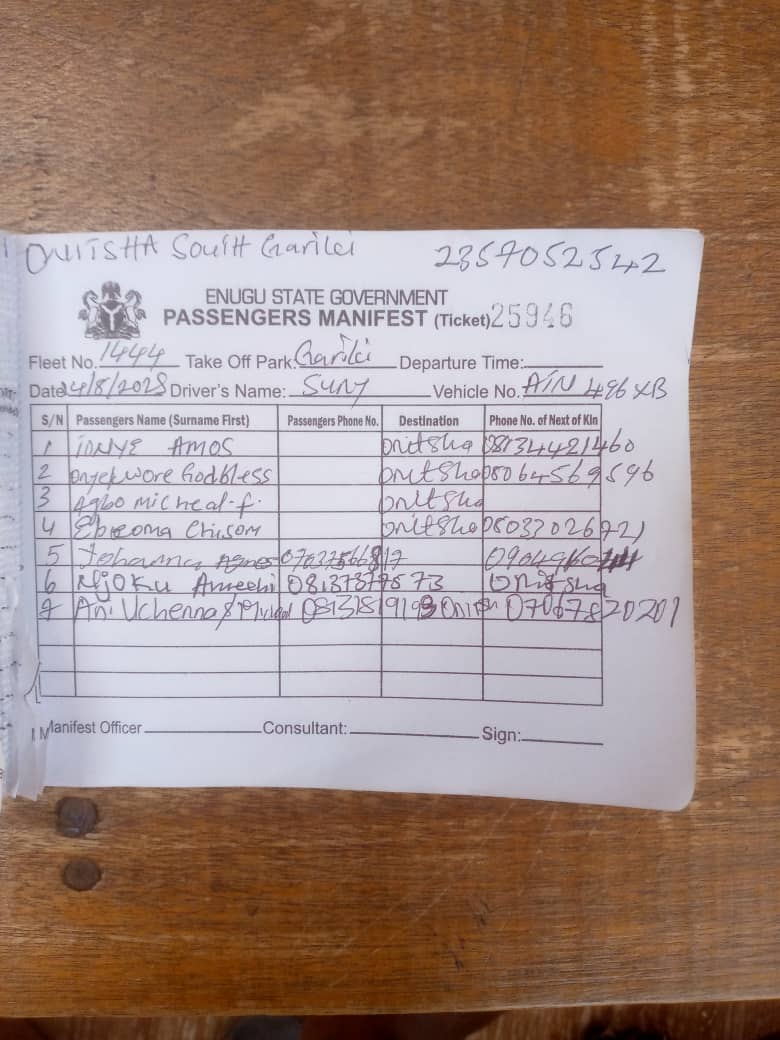 ONITSHA South Garilci 2357052542
ENUGU STATE GOVERNMENT
PASSENGERS MANIFEST (Ticket) 25946
Fleet No. 1444 Take Off Park: Garilci Departure Time:
Date 24/8/2025 Driver's Name: SUNY Vehicle No. AIN 496 XB
S/N Passengers Name (Surname First) Passengers Phone No. Destination Phone No. of Next of Kin
1 AMOS Onitsha 08134421460
2 Onyekwore Godbless Onitsha 08064569596
3 Agbo Micheal .f. Onitsha
4 Eberoma Chisom Onitsha 08033026721
5 Johanna Agnes
6 Njoku Ameechi Onitsha
7 Ani Uchenna 07067820201
Manifest Officer Consultant: Sign: